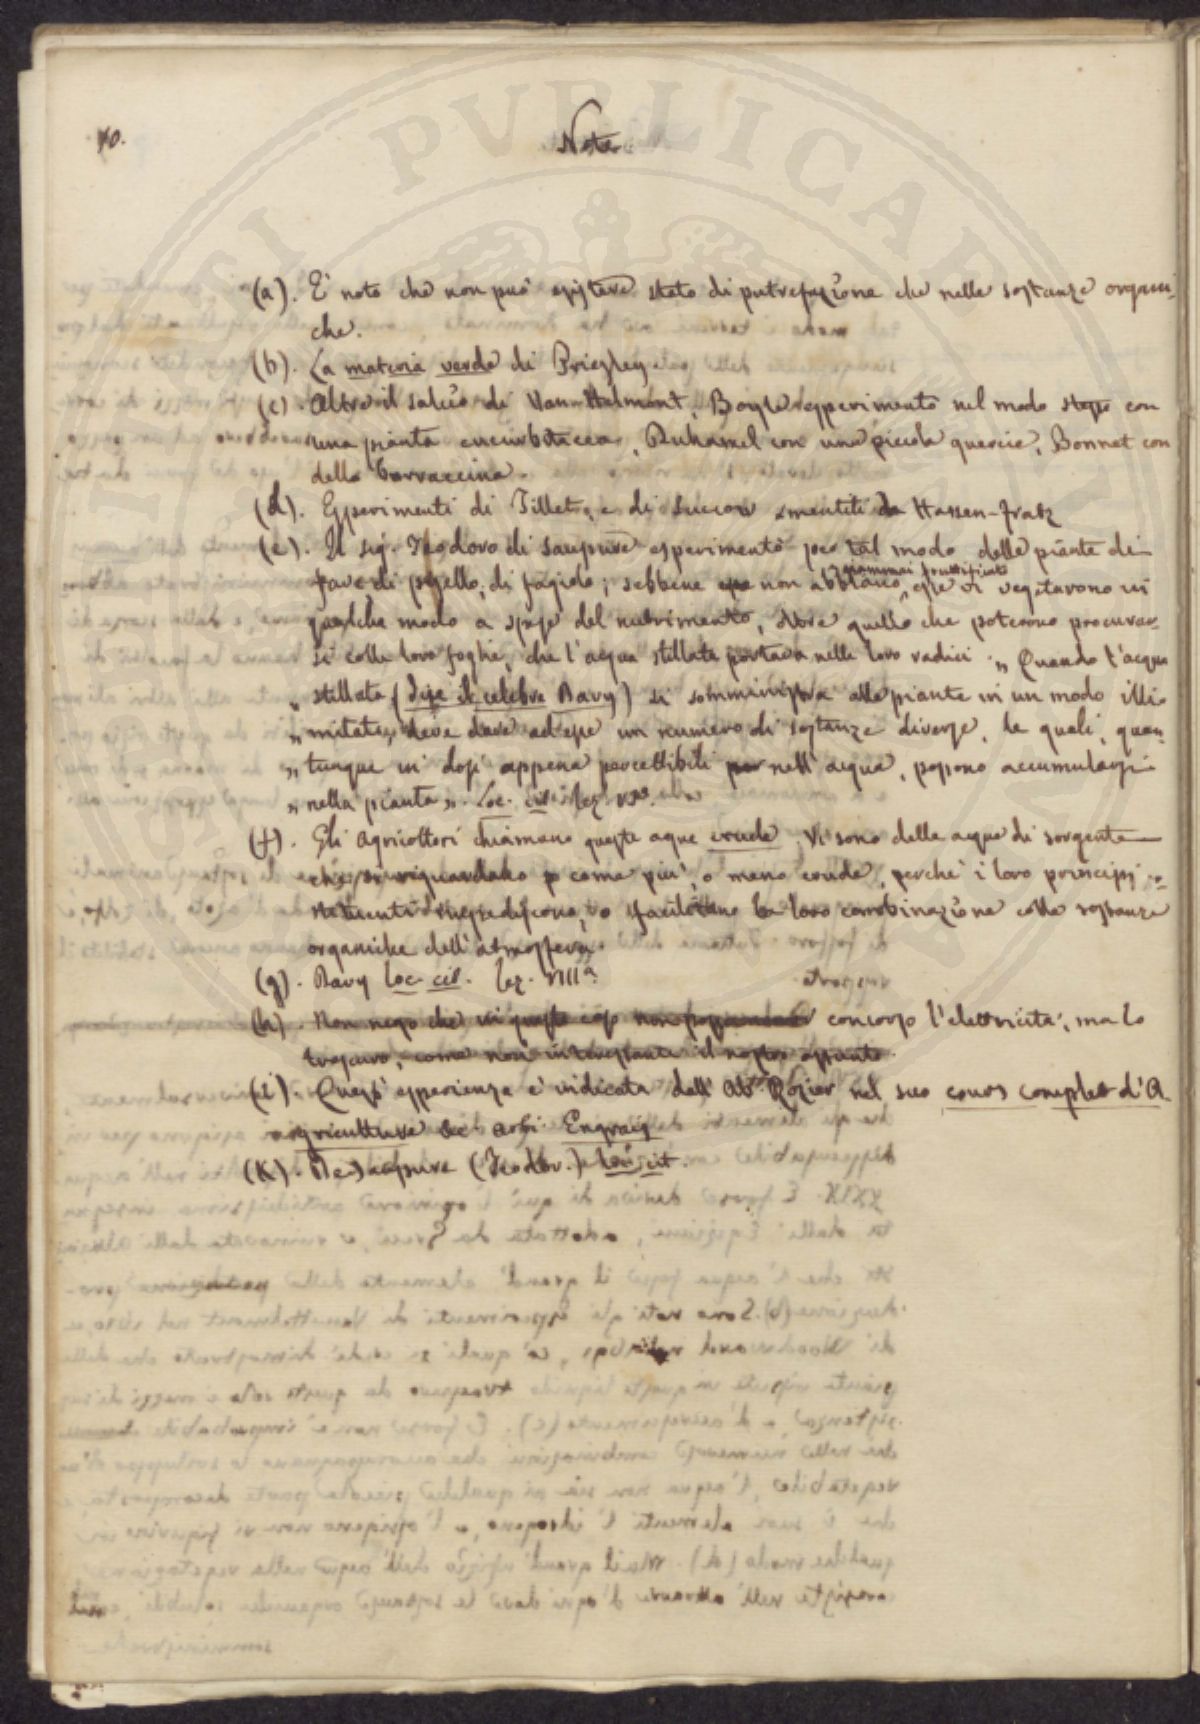 10.
Note
(a). È noto che non può esistere stato di putrefazione che nelle sostanze organi-
che.
(b). La materia verde di Priestley
(c). Oltre il salcio di Van-Helmont, Boyle esperimentò nel modo stesso con
una pianta cucurbitacea, Duhamel con una piccola quercie, Bonnet con
della borraccina.
(d). Esperimenti di Tillet, e di Succow smentiti da Hassen-fratz
(e). Il sig. Teodoro di Saussure esperimentò per tal modo delle piante di
fave di pisello, di fagiolo; sebbene non abbiano giammai fruttificato, esse vi vegetarono in
qualche modo a spese del nutrimento, oltre quello che poterono procurar-
si colle loro foglie, che l'acqua stillata portava nelle loro radici. „ Quando l'acqua
„ stillata (dice il celebre Davy) si somministra alle piante in un modo illi-
„ mitato, deve dare ad esse un numero di sostanze diverse, le quali, quan-
„ tunque in dosi appena percettibili nell'acqua, possono accumularsi
„ nella pianta „. Loc. cit. lez. VIIa.
(f). Gli agricoltori chiamano queste aque crude. Vi sono delle acque di sorgente
che si riguardano come più, o meno crude, perché i loro principj co-
stituenti impediscono, o facilitano la loro combinazione colle sostanze
organiche dell'atmosfera.
(g). Davy loc. cit. lez. VIIIa.
(h). Non nego che in queste cose non concorso l'elettricità, ma lo
trascuro, come non interessante il nostro assunto.
(i). Quest'esperienza è indicata dall'Ab. Rozier nel suo cours complet d'A
agriculture &c. art. Engrais
(K). De Saussure (Teodor.) loc. cit.